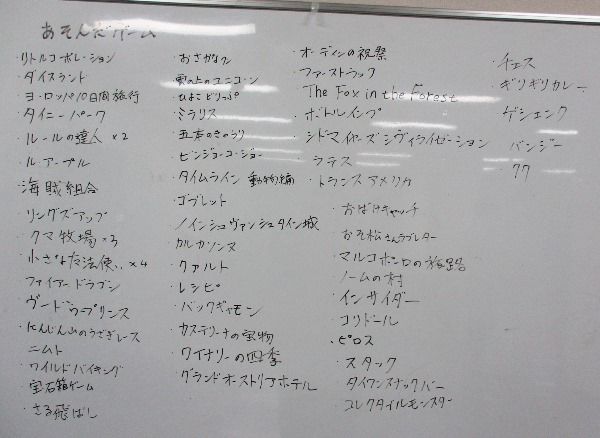 あそんだゲーム
・リトルコーポレーション
・ダイスランド
・ヨーロッパ10日間旅行
・タイニーパーク
・ルールの達人 ×2
・ル・アーブル
・海賊組合
・リングズアップ
・クマ牧場 ×3
・小さな魔法使い ×4
・ファイアードラゴン
・ヴードゥープリンス
・にんじん山のうさぎレース
・ニムト
・ワイルドバイキング
・宝石箱ゲーム
・さる飛ばし
・おさかな
・雲の上のユニコーン
・ひよこどりっぷ
・ミラリス
・五本のきゅうり
・ビンジョーコ・ジョー
・タイムライン 動物編
・ゴブレット
・ノイシュヴァンシュタイン城
・カルカソンヌ
・クァルト
・レシピ
・バックギャモン
・カステリーナの宝物
・ワイナリーの四季
・グランドオーストリアホテル
・オーディンの祝祭
・ファーストラック
・The Fox in the Forest
・ボトルインプ
・シドマイヤーズシヴィライゼーション
・ラテス
・トランスアメリカ
・おばけキャッチ
・おそ松さんラブレター
・マルコポーロの旅路
・ノームの村
・インサイダー
・コリドール
・ピロス
・スタック
・タイワンスナックバー
・コレクタイルモンスター
・チェス
・ギリギリカレー
・ゲシェンク
・バンジー
・クク